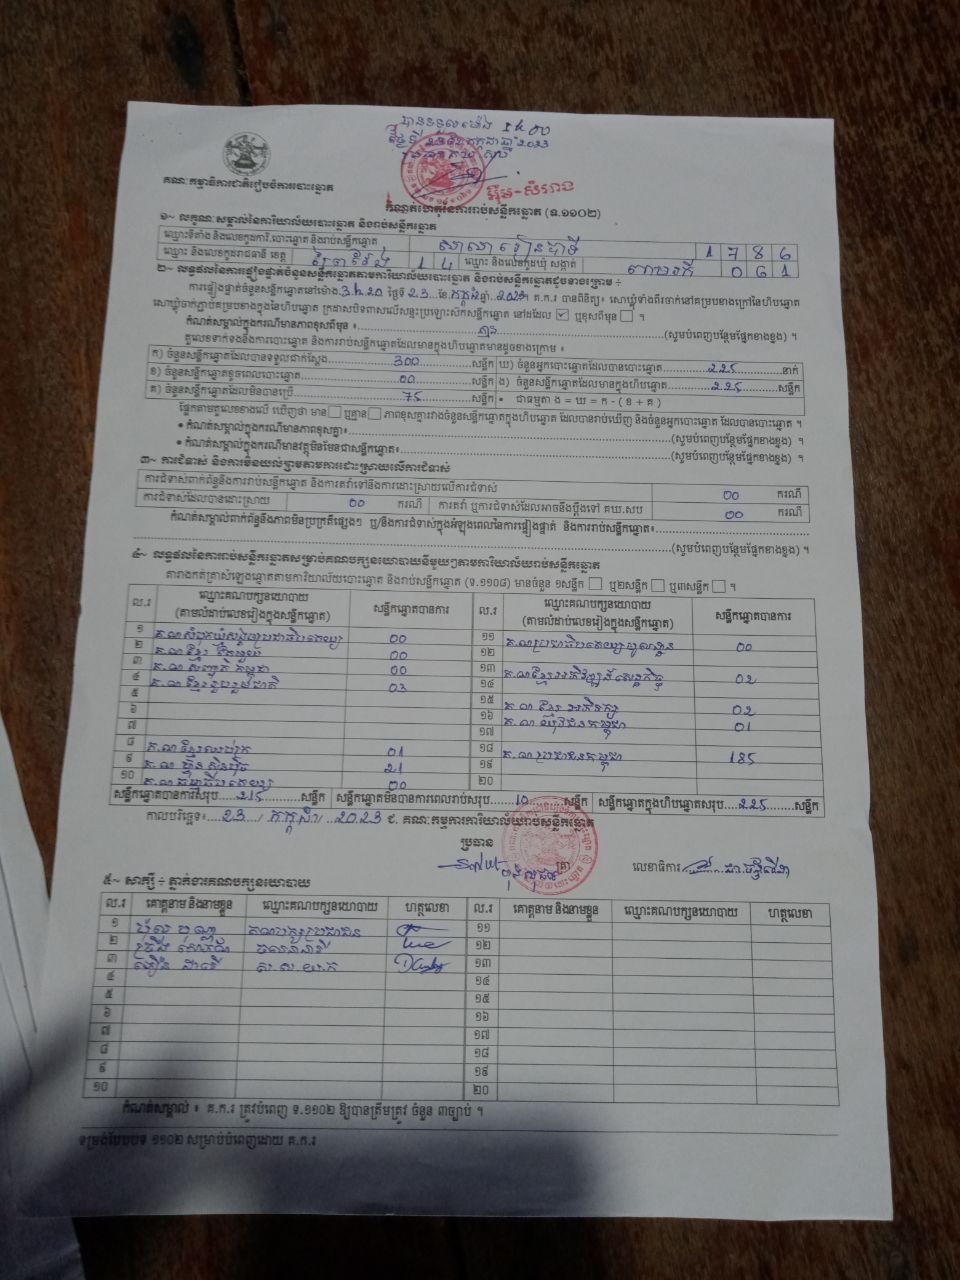 បានទទួលម៉ោង
គណៈកម្មាធិការជាតិរៀបចំការបោះឆ្នោត
កំណត់ហេតុនៃការរាប់សន្លឹកឆ្នោត (ទ.១១០២)
១~ លក្ខណៈសម្គាល់នៃការិយាល័យបោះឆ្នោត និងរាប់សន្លឹកឆ្នោត
ឈ្មោះទីតាំង និងលេខកូដការិ.បោះឆ្នោត និងរាប់សន្លឹកឆ្នោត 1 7 8 6
ឈ្មោះ និងលេខកូដរាជធានី ខេត្ត ព្រៃវែង 1 4 ឈ្មោះ និងលេខកូដឃុំ សង្កាត់ 0 6 1
២~ លទ្ធផលនៃការផ្ទៀងផ្ទាត់ចំនួនសន្លឹកឆ្នោតតាមការិយាល័យបោះឆ្នោត និងរាប់សន្លឹកឆ្នោតដូចខាងក្រោម ៖
ការផ្ទៀងផ្ទាត់ចំនួនសន្លឹកឆ្នោតនៅម៉ោង 3h20 ថ្ងៃទី 23 ខែ កក្កដា ឆ្នាំ 2023។ គ.ក.រ បានពិនិត្យ៖ សោឃ្លុំទាំងពីរចាក់នៅគម្របខាងក្រៅនៃហិបឆ្នោត
សោឃ្លុំចាក់ភ្ជាប់គម្របខាងក្នុងនៃហិបឆ្នោត ក្រដាសបិទពាសលើសន្ទះប្រឡោះស៊កសន្លឹកឆ្នោត នៅដដែល ឬខុសពីមុន ។
កំណត់សម្គាល់ក្នុងករណីមានភាពខុសពីមុន ៖ គ្មាន (សូមបំពេញបន្ថែមផ្នែកខាងខ្នង) ។
តួលេខទាក់ទងនឹងការបោះឆ្នោត និងការរាប់សន្លឹកឆ្នោតដែលមានក្នុងហិបឆ្នោតមានដូចខាងក្រោម ៖
ក) ចំនួនសន្លឹកឆ្នោតដែលបានទទួលជាក់ស្តែង 300 សន្លឹក ឃ) ចំនួនអ្នកបោះឆ្នោតដែលបានបោះឆ្នោត 225 នាក់
ខ) ចំនួនសន្លឹកឆ្នោតខូចពេលបោះឆ្នោត 00 សន្លឹក ង) ចំនួនសន្លឹកឆ្នោតដែលមានក្នុងហិបឆ្នោត 225 សន្លឹក
គ) ចំនួនសន្លឹកឆ្នោតដែលមិនបានប្រើ 75 សន្លឹក • ជាធម្មតា ង = ឃ = ក - ( ខ + គ )
ផ្អែកតាមតួលេខខាងលើ ឃើញថា មាន ឬគ្មាន ភាពខុសគ្នារវាងចំនួនសន្លឹកឆ្នោតក្នុងហិបឆ្នោត ដែលបានរាប់ឃើញ និងចំនួនអ្នកបោះឆ្នោត ដែលបានបោះឆ្នោត ។
• កំណត់សម្គាល់ក្នុងករណីមានភាពខុសគ្នា៖ (សូមបំពេញបន្ថែមផ្នែកខាងខ្នង) ។
• កំណត់សម្គាល់ក្នុងករណីមានវត្ថុមិនមែនជាសន្លឹកឆ្នោត៖ (សូមបំពេញបន្ថែមផ្នែកខាងខ្នង) ។
៣~ ការជំទាស់ និងការមិនយល់ព្រមតាមការដោះស្រាយលើការជំទាស់
ការជំទាស់ពាក់ព័ន្ធនឹងការរាប់សន្លឹកឆ្នោត និងការតវ៉ាទៅនឹងការដោះស្រាយលើការជំទាស់ 00 ករណី
ការជំទាស់ដែលបានដោះស្រាយ 00 ករណី ការតវ៉ា ឬការជំទាស់ដែលអាចនឹងប្តឹងទៅ គឃ.សប 00 ករណី
កំណត់សម្គាល់ពាក់ព័ន្ធនឹងភាពមិនប្រក្រតីផ្សេងៗ ឬ/និងការជំទាស់ក្នុងអំឡុងពេលនៃការផ្ទៀងផ្ទាត់ និងការរាប់សន្លឹកឆ្នោត៖
(សូមបំពេញបន្ថែមផ្នែកខាងខ្នង) ។
៤~ លទ្ធផលនៃការរាប់សន្លឹកឆ្នោតសម្រាប់គណបក្សនយោបាយនីមួយៗតាមការិយាល័យរាប់សន្លឹកឆ្នោត
តារាងកត់ត្រាសំឡេងឆ្នោតតាមការិយាល័យបោះឆ្នោត និងរាប់សន្លឹកឆ្នោត (ទ.១១០៨) មានចំនួន ១សន្លឹក ឬ២សន្លឹក ឬ៣សន្លឹក ។
ល.រ ឈ្មោះគណបក្សនយោបាយ (តាមលំដាប់លេខរៀងក្នុងសន្លឹកឆ្នោត) សន្លឹកឆ្នោតបានការ ល.រ ឈ្មោះគណបក្សនយោបាយ (តាមលំដាប់លេខរៀងក្នុងសន្លឹកឆ្នោត) សន្លឹកឆ្នោតបានការ
១ គ.ណ សំបុកឃ្មុំសង្គមប្រជាធិបតេយ្យ 00 ១១ 00
២ គ.ណ ខ្មែរ 00 ១២
៣ គ.ណ សញ្ជាតិ កម្ពុជា 00 ១៣ គ.ណ ខ្មែរអភិវឌ្ឍន៍សេដ្ឋកិច្ច 02
៤ គ.ណ ខ្មែររួបរួមជាតិ 03 ១៤
៥ ១៥ 02
៦ ១៦ គ.ណ យុវជនកម្ពុជា 01
៧ ១៧
៨ 01 ១៨ គ.ណ ប្រជាជនកម្ពុជា 185
៩ គ.ណ ហ៊្វុនស៊ិនប៉ិច 21 ១៩
១០ 00 ២០
សន្លឹកឆ្នោតបានការសរុប 215 សន្លឹក សន្លឹកឆ្នោតមិនបានការពេលរាប់សរុប 10 សន្លឹក សន្លឹកឆ្នោតក្នុងហិបឆ្នោតសរុប 225 សន្លឹក
កាលបរិច្ឆេទ៖ 23 / កក្កដា / 2023 ៩. គណៈកម្មការការិយាល័យរាប់សន្លឹកឆ្នោត
ប្រធាន
ត្រា លេខាធិការ
៥~ សាក្សី ÷ ភ្នាក់ងារគណបក្សនយោបាយ
ល.រ គោត្តនាម និងនាមខ្លួន ឈ្មោះគណបក្សនយោបាយ ហត្ថលេខា ល.រ គោត្តនាម និងនាមខ្លួន ឈ្មោះគណបក្សនយោបាយ ហត្ថលេខា
១ គណបក្សប្រជាជន ១១
២ ១២
៣ ១៣
៤ ១៤
៥ ១៥
៦ ១៦
៧ ១៧
៨ ១៨
៩ ១៩
១០ ២០
កំណត់សម្គាល់ ៖ គ.ក.រ ត្រូវបំពេញ ទ.១១០២ ឱ្យបានត្រឹមត្រូវ ចំនួន ៣ច្បាប់ ។
ទម្រង់បែបបទ ១១០២ សម្រាប់បំពេញដោយ គ.ក.រ